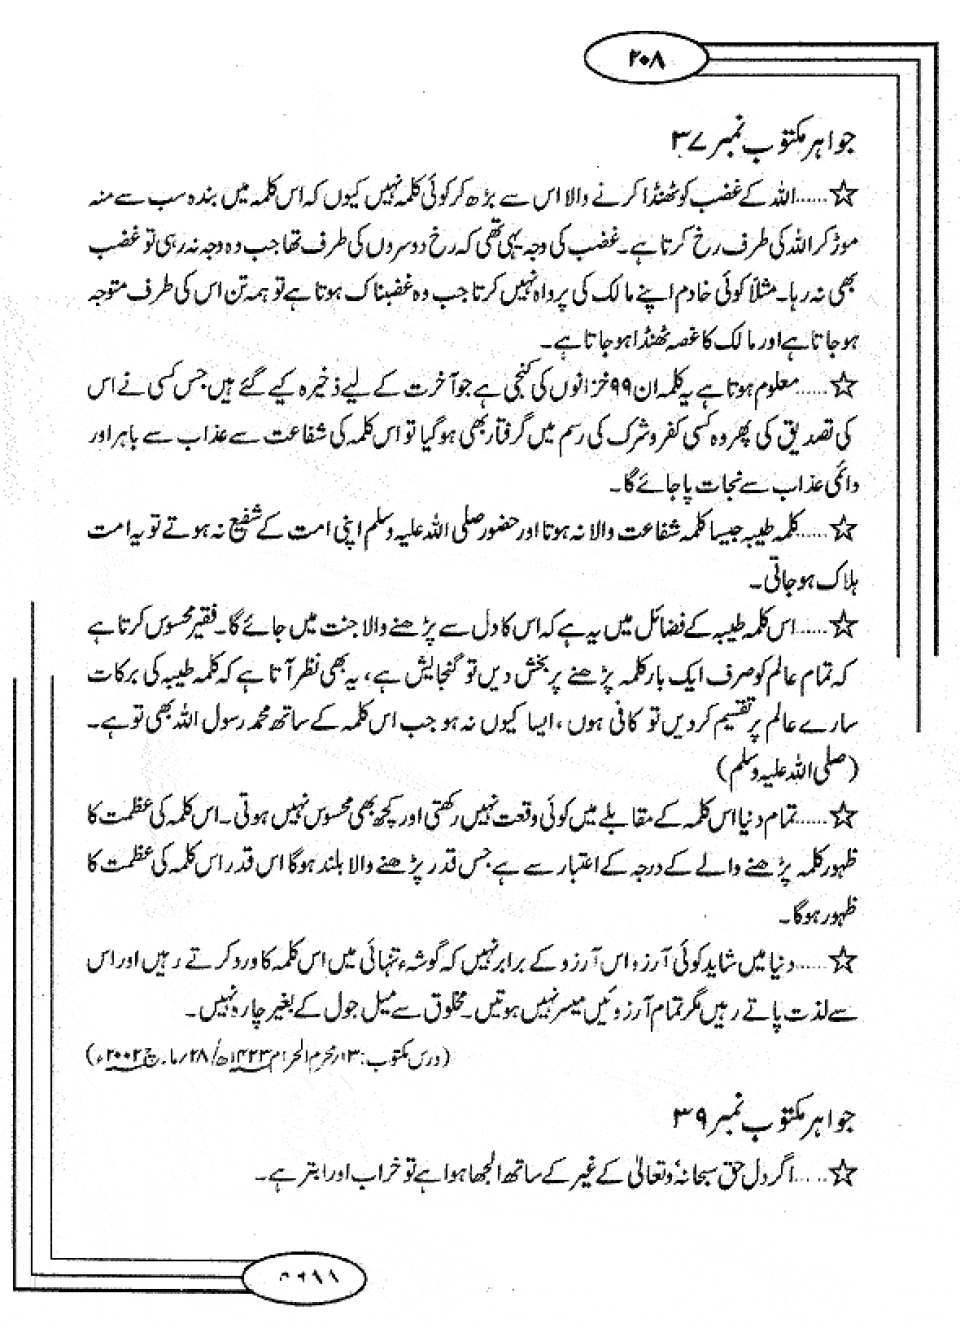 ۲۰۸
جواہر مکتوب نمبر ۳۷
☆......اللہ کے غضب کو ٹھنڈا کرنے والا اس سے بڑھ کر کوئی کلمہ نہیں کیوں کہ اس کلمہ میں بندہ سب سے منہ
موڑ کر اللہ کی طرف رخ کرتا ہے۔ غضب کی وجہ یہی تھی کہ رخ دوسروں کی طرف تھا جب وہ وجہ نہ رہی تو غضب
بھی نہ رہا۔ مثلاً کوئی خادم اپنے مالک کی پرواہ نہیں کرتا جب وہ غضبناک ہوتا ہے تو ہمہ تن اس کی طرف متوجہ
ہو جاتا ہے اور مالک کا غصہ ٹھنڈا ہو جاتا ہے۔
☆.....معلوم ہوتا ہے یہ کلمہ ان ۹۹ خزانوں کی کنجی ہے جو آخرت کے لیے ذخیرہ کیے گئے ہیں جس کسی نے اس
کی تصدیق کی پھر وہ کسی کفر و شرک کی رسم میں گرفتار بھی ہو گیا تو اس کلمہ کی شفاعت سے عذاب سے باہر اور
دائمی عذاب سے نجات پا جائے گا۔
☆......کلمہ طیبہ جیسا کلمہ شفاعت والا نہ ہوتا اور حضور صلی اللہ علیہ وسلم اپنی امت کے شفیع نہ ہوتے تو یہ امت
ہلاک ہو جاتی۔
☆......اس کلمہ طیبہ کے فضائل میں یہ ہے کہ اس کا دل سے پڑھنے والا جنت میں جائے گا۔ فقیر محسوس کرتا ہے
کہ تمام عالم کو صرف ایک بار کلمہ پڑھنے پر بخش دیں تو گنجایش ہے، یہ بھی نظر آتا ہے کہ کلمہ طیبہ کی برکات
سارے عالم پر تقسیم کر دیں تو کافی ہوں، ایسا کیوں نہ ہو جب اس کلمہ کے ساتھ محمد رسول اللہ بھی تو ہے۔
(صلی اللہ علیہ وسلم)
☆.....تمام دنیا اس کلمہ کے مقابلے میں کوئی وقعت نہیں رکھتی اور کچھ بھی محسوس نہیں ہوتی۔ اس کلمہ کی عظمت کا
ظہور کلمہ پڑھنے والے کے درجہ کے اعتبار سے ہے جس قدر پڑھنے والا بلند ہوگا اس قدر اس کلمہ کی عظمت کا
ظہور ہوگا۔
☆.....دنیا میں شاید کوئی آرزو اس آرزو کے برابر نہیں کہ گوشہء تنہائی میں اس کلمہ کا ورد کرتے رہیں اور اس
سے لذت پاتے رہیں مگر تمام آرزوئیں میسر نہیں ہوتیں۔ مخلوق سے میل جول کے بغیر چارہ نہیں۔
(درس مکتوب: ۱۳/محرم الحرام ۱۴۲۳ھ/۲۸/مارچ ۲۰۰۲ء)
جواہر مکتوب نمبر ۳۹
☆.....اگر دل حق سبحانہٗ وتعالیٰ کے غیر کے ساتھ الجھا ہوا ہے تو خراب اور ابتر ہے۔